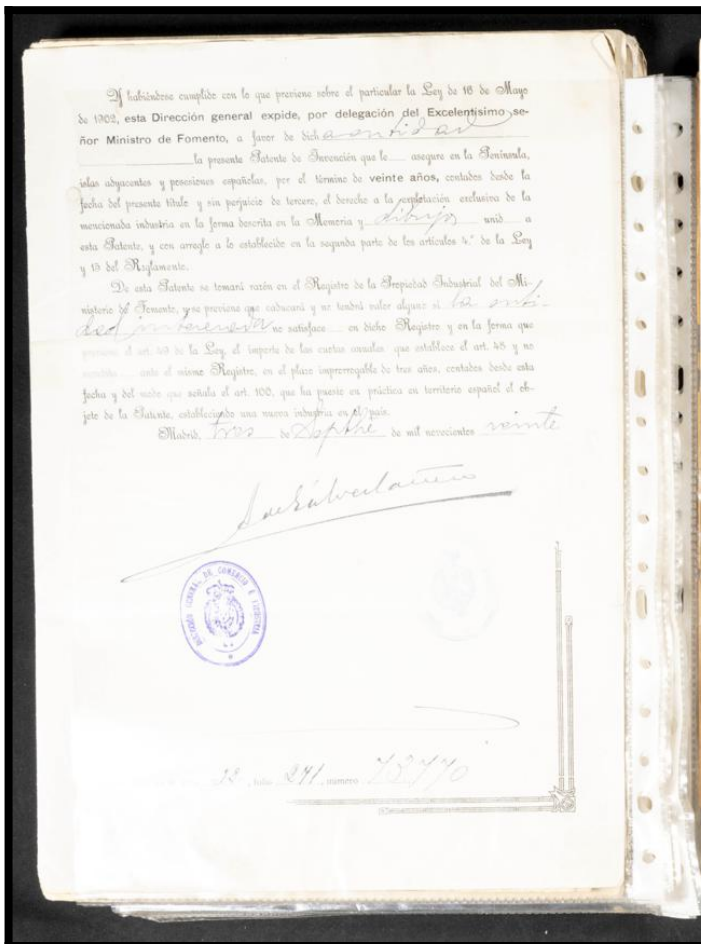 Y habiéndose cumplido con lo que previene sobre el particular la Ley de 16 de Mayo
de 1902, esta Dirección general expide, por delegación del Excelentísimo se-
ñor Ministro de Fomento, a favor de dich a entidad
la presente Patente de Invención que le asegure en la Península,
islas adyacentes y posesiones españolas, por el término de veinte años, contados desde la
fecha del presente título y sin perjuicio de tercero, el derecho a la explotación exclusiva de la
mencionada industria en la forma descrita en la Memoria y dibujos unid a
esta Patente, y con arreglo a lo establecido en la segunda parte de los artículos 4.º de la Ley
y 13 del Reglamento.
De esta Patente se tomará razón en el Registro de la Propiedad Industrial del Mi-
nisterio de Fomento, y se previene que caducará y no tendrá valor alguno si la enti-
dad interesada no satisface en dicho Registro y en la forma que
previene el art. 49 de la Ley, el importe de las cuotas anuales que establece el art. 48 y no
acredita ante el mismo Registro, en el plazo improrrogable de tres años, contados desde esta
fecha y del modo que señala el art. 100, que ha puesto en práctica en territorio español el ob-
jeto de la Patente, estableciendo una nueva industria en el país.
Madrid, tres de Sepbre de mil novecientos veinte
DIRECCIÓN GENERAL DE COMERCIO E INDUSTRIA
32, folio 271, número